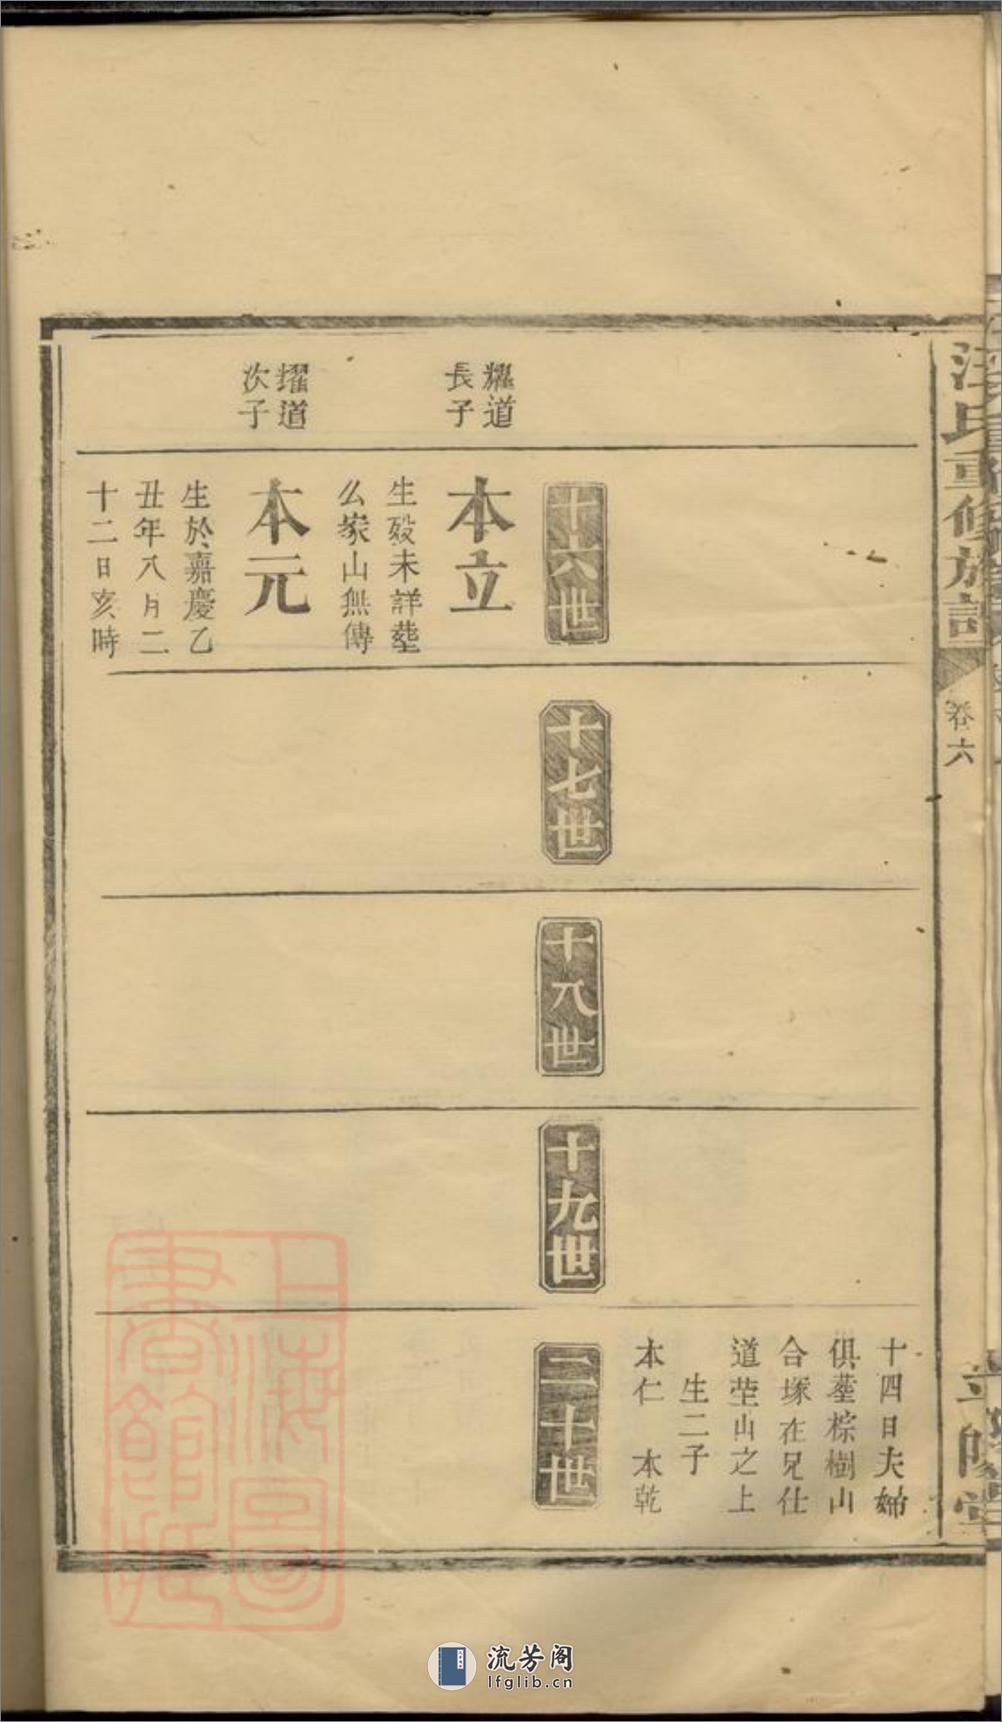 汪氏重修族譜
卷六
十四日夫婦
俱塟棕樹山
合塚在兄仕
道塋山之上
生二子
本仁 本乾
十六世
十七世
十八世
十九世
二十世
耀道
長子
本立
生殁未詳塟
么家山無傳
耀道
次子
本元
生於嘉慶乙
丑年八月二
十二日亥時
上海圖
書館藏
流芳阁
lfglib.cn